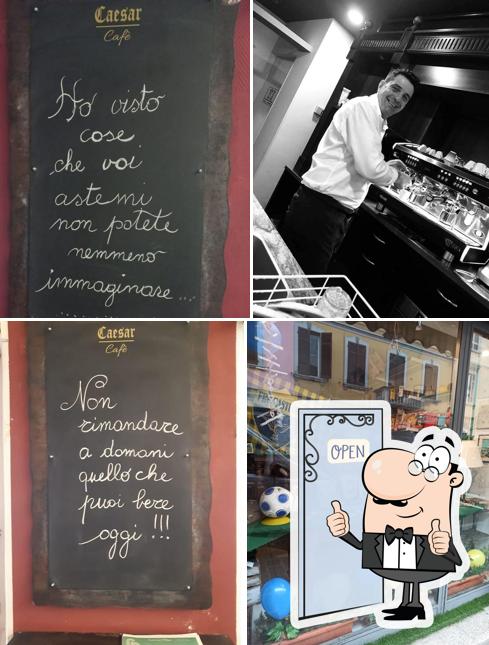 Caesar
Cafè
Ho visto
cose
che voi
astemi
non potete
nemmeno
immaginare...
Caesar
Cafè
Non
rimandare
a domani
quello che
puoi bere
oggi !!!
OPEN